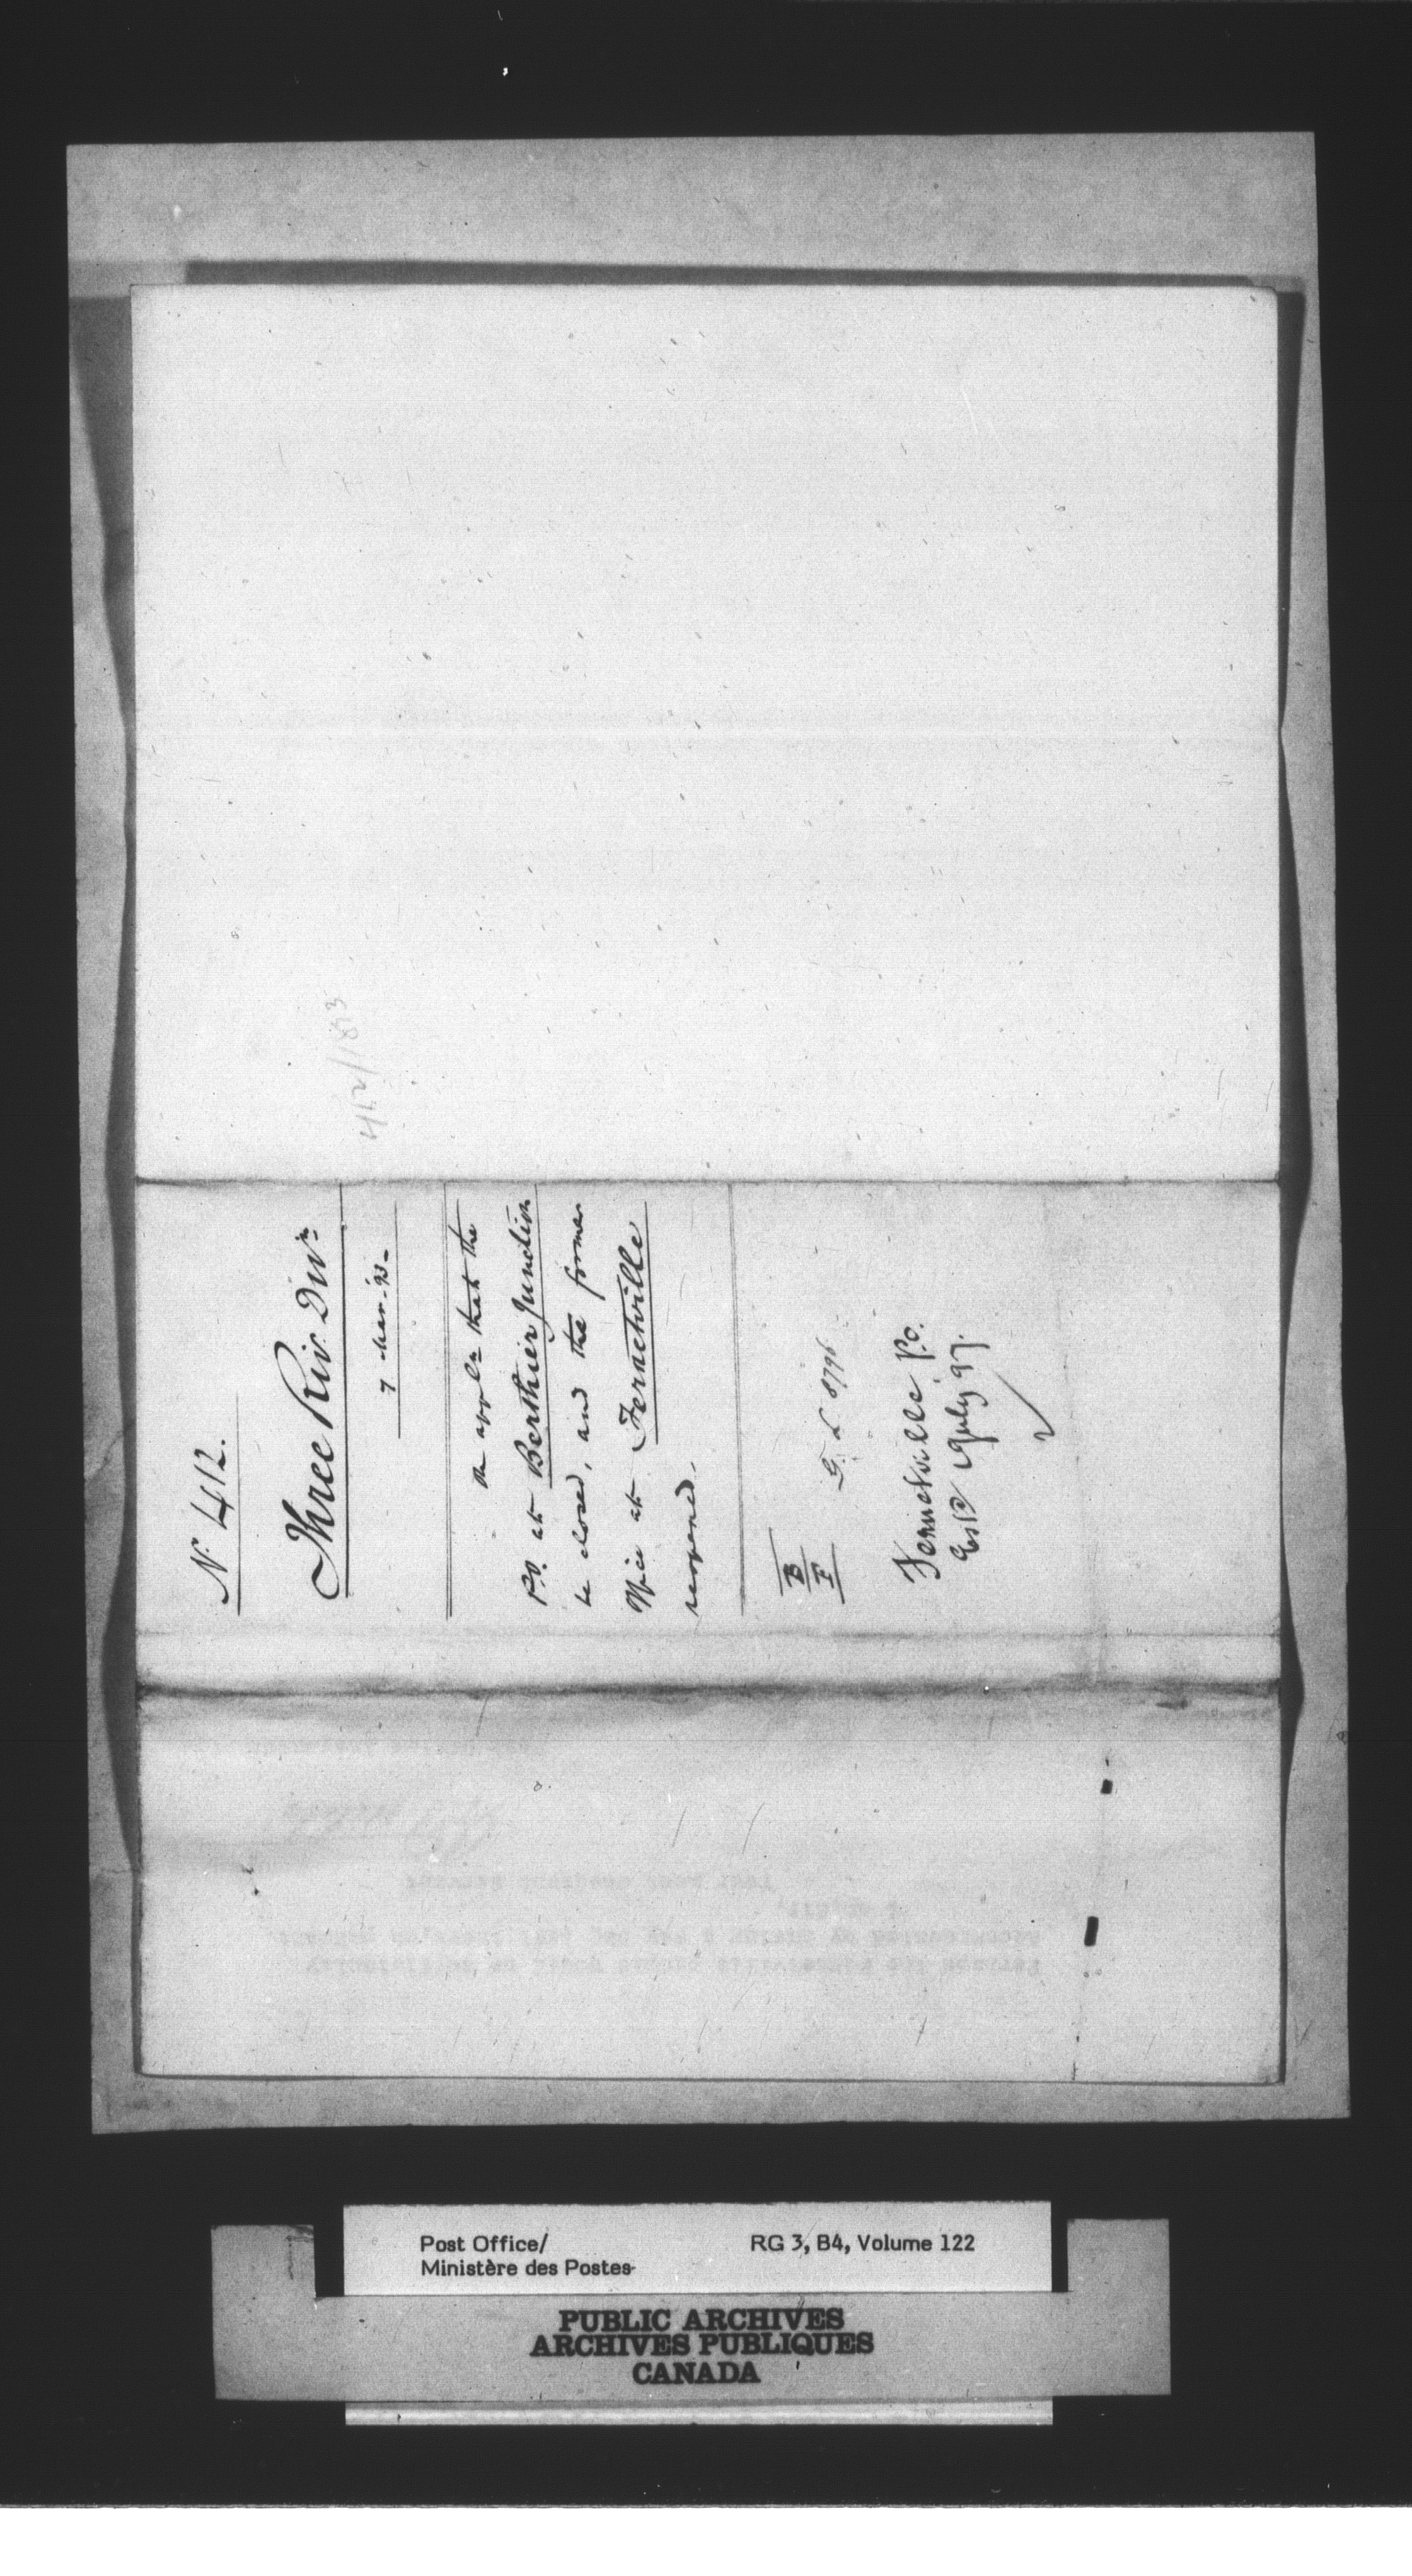 No. 412.
Three Riv. Divn
7 Mar. 93.
On appln that the
P.O. at Berthier Junction
be closed, and the former
Office at Fernetville
reopened.
B
F
8796
Fernetville P.O.
Est'd July 97.
Post Office/
Ministère des Postes
RG 3, B4, Volume 122
PUBLIC ARCHIVES
ARCHIVES PUBLIQUES
CANADA